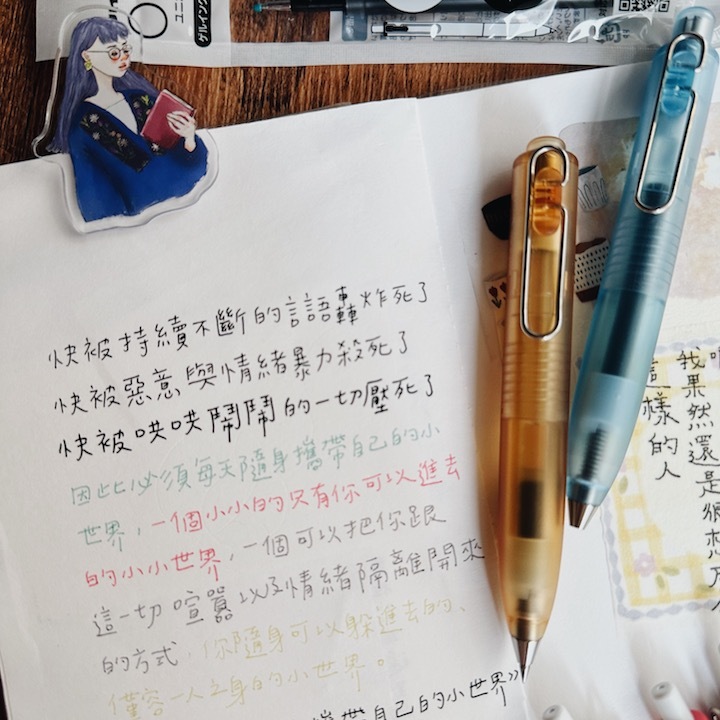 ユニ
ゲルイン
快被持續不斷的言語轟炸死了
快被惡意與情緒暴力殺死了
快被哄哄鬧鬧的一切壓死了
因此必須每天隨身攜帶自己的小
世界，一個小小的只有你可以進去
的小小世界，一個可以把你跟
這一切喧囂以及情緒隔離開來
的方式，你隨身可以躲進去的、
僅容一人之身的小世界。
帶自己的小世界》
我果然還是很想
這樣的人